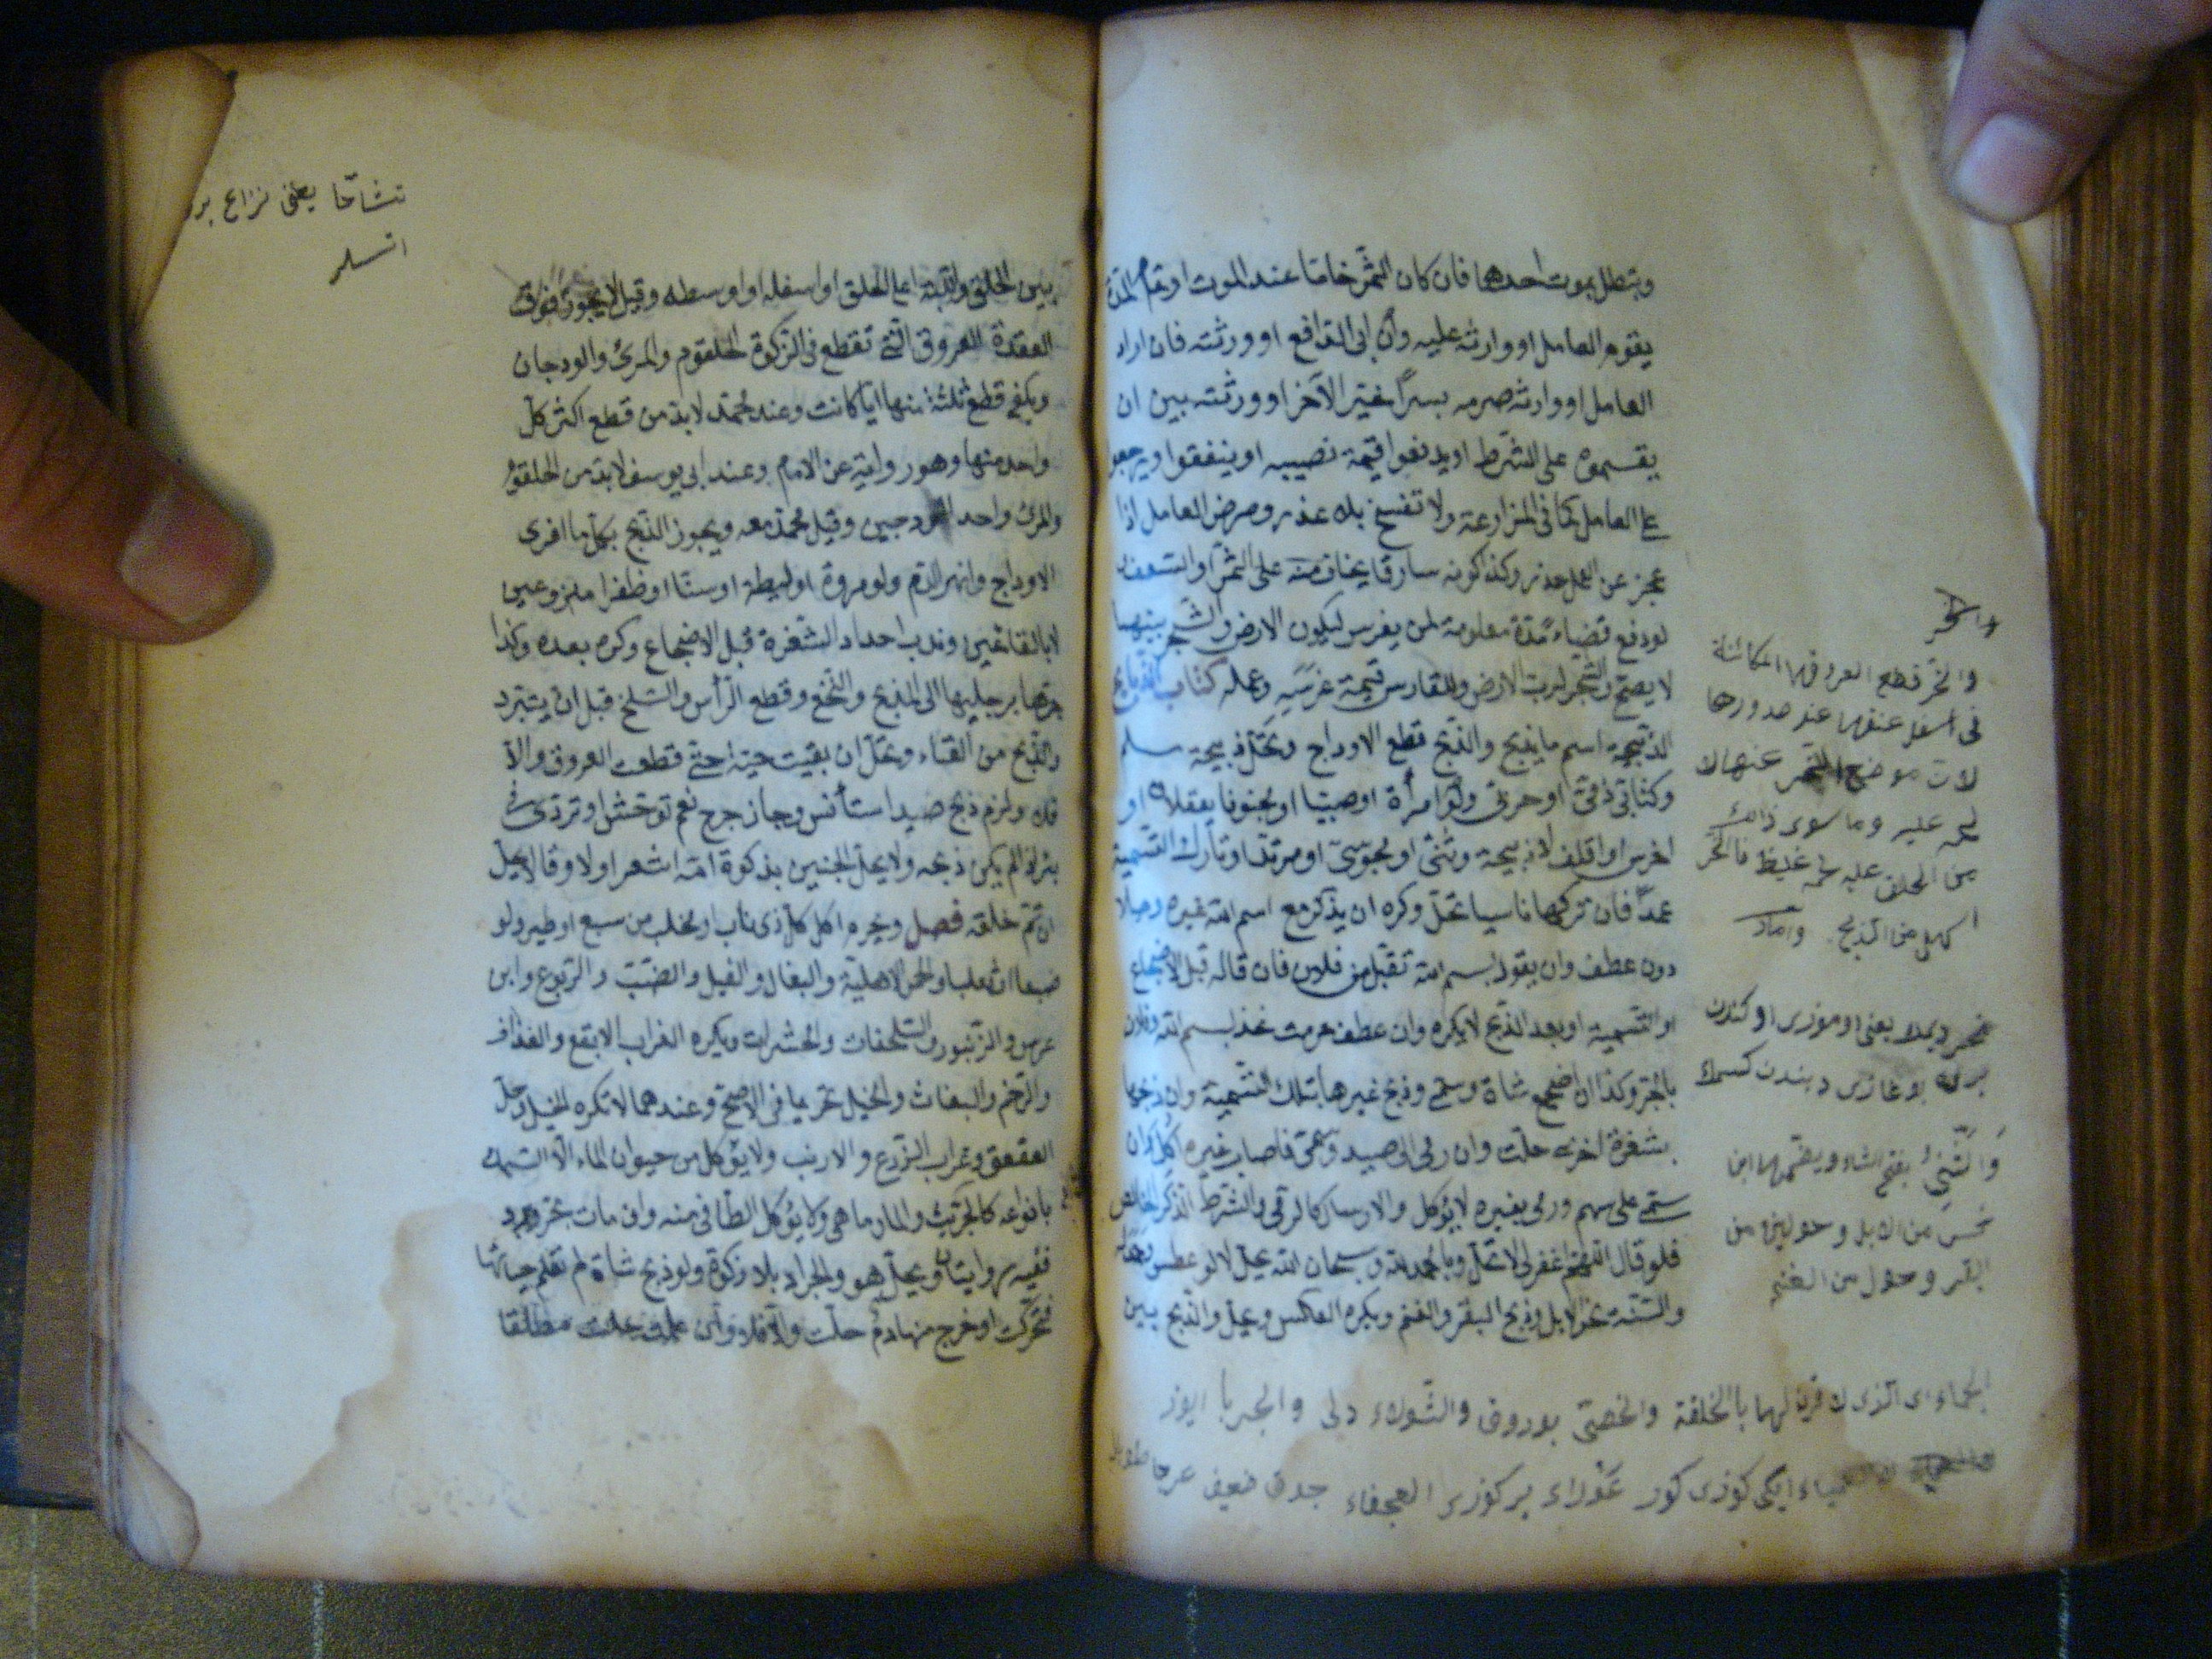 وتبطل بموت احدهما فان كان الثمر خاما عند الموت او تمام المدة
يقوم العامل او وارثه عليه وان ابى الدافع او ورثته فان اراد
العامل او وارثه صرمه بسرا خير الآخر او ورثته بين ان
يقسموه على الشرط او يدفعوا قيمة نصيبه او ينفقوا ويرجعوا
على العامل كما فى المزارعة ولا تفسخ بلا عذر ومرض العامل اذا
عجز عن العمل عذر وكذا كونه سارقا يخاف منه على الثمر او السعف
لو دفع فضاء مدة معلومة لمن يغرس ليكون الارض والشجر بينهما
لا يصح والشجر لرب الارض وللغارس قيمة غرسه وعمله كتاب الذبايح
الذبيحة اسم ما يذبح والذبح قطع الاوداج وتحل ذبيحة مسلم
وكتابى ذمى او حربى ولو امرأة او صبيا او مجنونا يعقلان او
اخرس او اقلف لا ذبيحة وثنى او مجوسى او مرتد او تارك التسمية
عمدا فان تركها ناسيا تحل وكره ان يذكر مع اسم الله غيره وصلا
دون عطف وان يقول بسم الله تقبل من فلان فان قاله قبل الاضجاع
او التسمية او بعد الذبح لا يكره وان عطف حرمت نحو بسم الله وفلان
بالجر وكذا ان اضجع شاة وسمى وذبح غيرها بتلك التسمية وان ذبحها
بشفرة اخرى حلت وان رمى الى صيد وسمى فاصاب غيره اكل وان
سمى على سهم ورمى بغيره لا يؤكل والارسال كالرمى والشرط الذكر الخالص
فلو قال اللهم اغفر لى لا تحل وبالحمد لله وسبحان الله يحل لا لو عطس
والسنة نحر الابل وذبح البقر والغنم ويكره العكس ويحل والذبح بين
والنحر قطع العروق الكائنة
فى اسفل عنقها عند صدورها
لان موضع النحر عنها لا
لحم عليه وما سوى ذلك
من الحلق عليه لحم غليظ فالنحر
اسهل من الذبح
والثنى بفتح الثاء ويضمها ابن
خمس من الابل وحولين من
البقر وحول من الغنم
الجماء اى الذى لا قرن لها بالخلقة والخصى بوروق والثولاء دلى والجربا اليوز
ايكى كوزى كور عوراء بر كوزى العجفاء جدى ضعيف عرجا
تشاحا يعنى نزاع
اتسلر
بين الحلق واللبة اعلى الحلق او اسفله او اوسطه وقيل لا يجوز فوق
العقدة العروق التى تقطع فى الزكوة الحلقوم والمرئ والودجان
ويكفى قطع ثلثة منها ايا كانت وعند محمد لا بد من قطع اكثر كل
واحد منها وهو رواية عن الامام وعند ابى يوسف لا بد من الحلقوم
والمرئ واحد الودجين وقيل محمد معه ويجوز الذبح بكل ما افرى
الاوداج وانهر الدم ولو مروة او ليطة او سنا او ظفرا منزوعين
لا بالقائمين وندب احداد الشفرة قبل الاضجاع وكره بعده وكذا
جرها برجليها الى المذبح والنخع وقطع الرأس والسلخ قبل ان يتبرد
والذبح من القفاء وتحل ان بقيت حية حتى قطعت العروق والا
فلا ولزم ذبح صيد استأنس وجاز جرح نعم توحش او تردى فى
بئر اذا لم يمكن ذبحه ولا يحل الجنين بذكوة امه اشعر اولا وقالا يحل
ان تم خلقه فصل ويحرم اكل كل ذى ناب او مخلب من سبع او طير ولو
ضبعا او ثعلبا والحمر الاهلية والبغال والفيل والضب والربوع وابن
عرس والزنبور والسلحفات والحشرات ويكره الغراب الابقع والغداف
والرخم والبغاث والخيل تحريما فى الاصح وعندهما لا تكره الخيل وحل
العقعق وغراب الزرع والارنب ولا يؤكل من حيوان الماء الا السمك
بانواعه كالجريث والمارماهى ولا يؤكل الطافى منه وان مات بحر او برد
ففيه روايتان ويحل هو والجراد بلا زكوة ولو ذبح شاة لم تعلم حياتها
فتحركت او خرج منها دم حلت والا فلا وان علمت حلت مطلقا